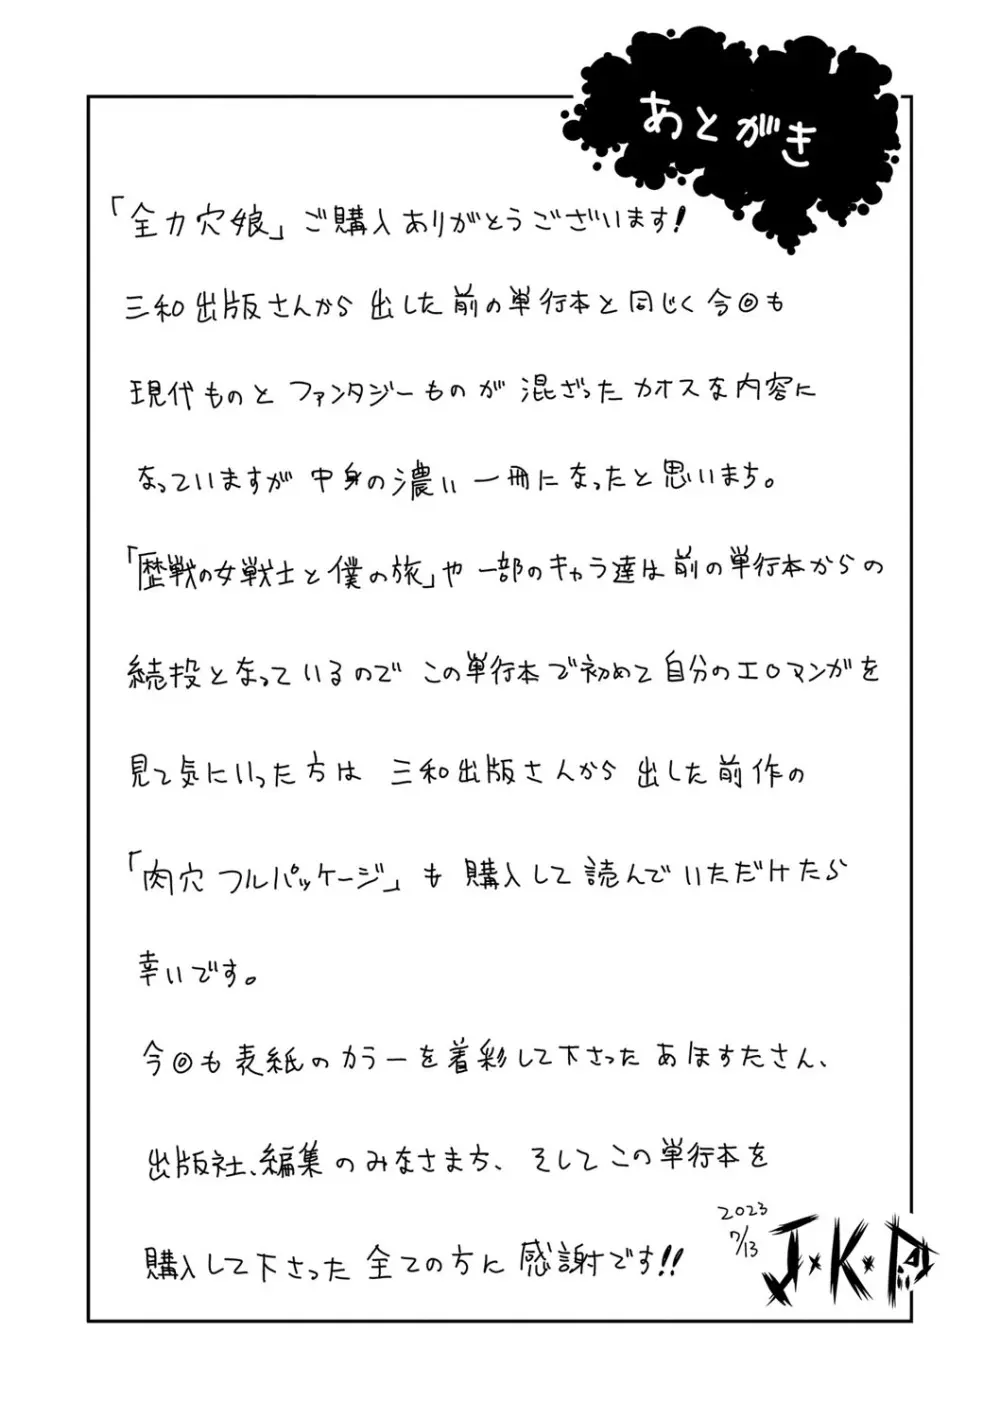 あとがき
「全力穴娘」ご購入ありがとうございます!
三和出版さんから出した前の単行本と同じく今回も
現代ものとファンタジーものが混ざったカオスな内容に
なっていますが中身の濃い一冊になったと思いまち。
「歴戦の女戦士と僕の旅」や一部のキャラ達は前の単行本からの
続投となっているのでこの単行本で初めて自分のエロマンガを
見て気にいった方は 三和出版さんから出した前作の
「肉穴フルパッケージ」も購入して読んでいただけたら
幸いです。
今回も表紙のカラーを着彩して下さったあほすたさん、
出版社、編集のみなさまち、そしてこの単行本を
購入して下さった全ての方に感謝です!!
2023
7/13
J×K×P